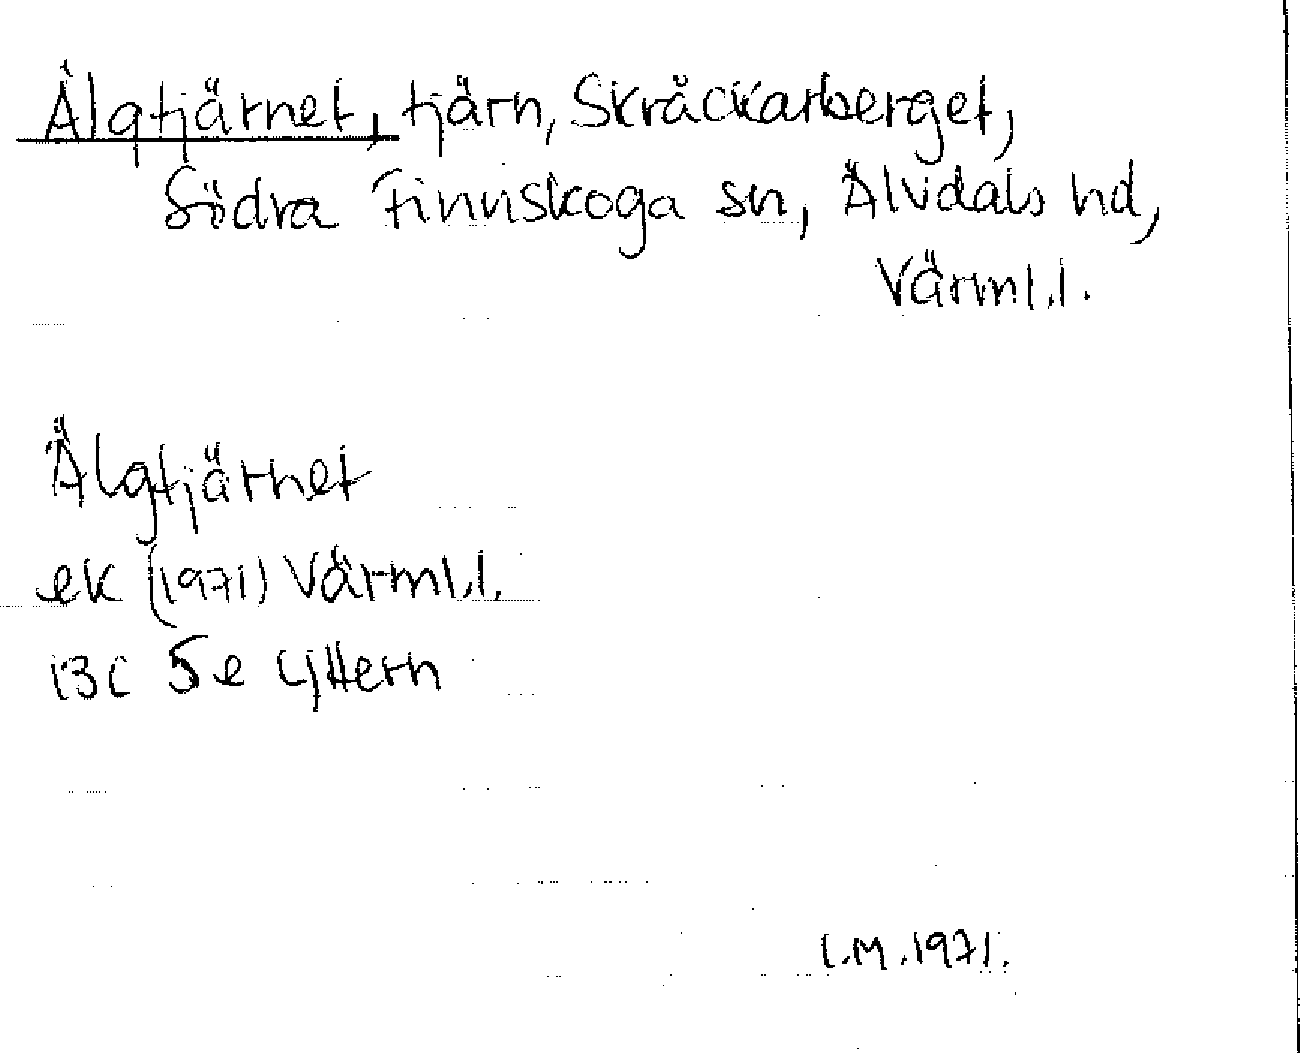 Älgtjärnet, tjärn, Skråckarberget,
Södra Finnskoga sn, Älvdals hd,
Värml.l.
Älgtjärnet
ek (1971) Värml.l.
13C 5e Yttern
L.M.1971.